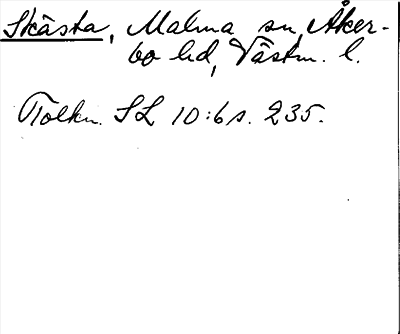 Skästa, Malma sn, Åker-
bo hd, Västm. l.
Tolkn. SL 10:6 s. 235.